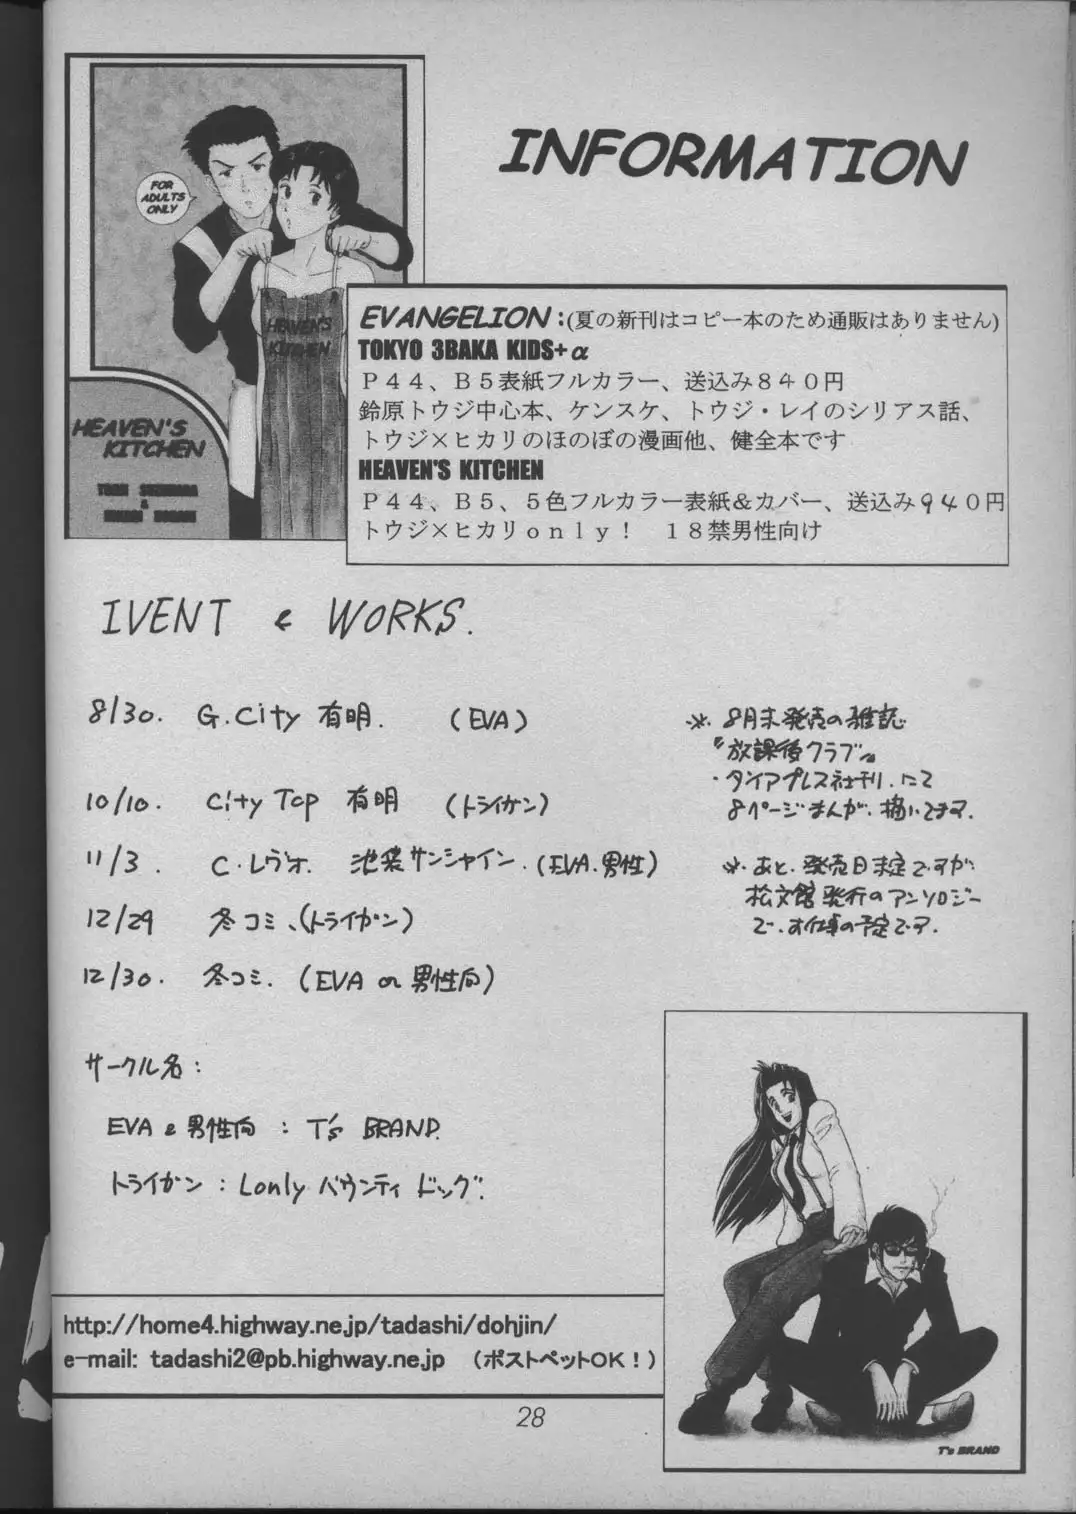 INFORMATION
FOR
ADULTS
ONLY
HEAVEN'S
KITCHEN
HEAVEN'S
KITCHEN
&
EVANGELION:(夏の新刊はコピー本のため通販はありません)
TOKYO 3BAKA KIDS+α
P44、B5表紙フルカラー、送込み840円
鈴原トウジ中心本、ケンスケ、トウジ・レイのシリアス話、
トウジ×ヒカリのほのぼの漫画他、健全本です
HEAVEN'S KITCHEN
P44、B5、5色フルカラー表紙&カバー、送込み940円
トウジ×ヒカリonly! 18禁男性向け
IVENT & WORKS.
8/30. G.City 有明. (EVA)
10/10. City Top 有明 (トライガン)
11/3. C.レヴォ. 池袋サンシャイン.(EVA.男性)
12/29 冬コミ、(トライガン)
12/30. 冬コミ. (EVA or 男性向)
※. 8月末発売の雑誌
『放課後クラブ』
・タイアプレス社刊.にて
8ページまんが、描いてます.
※. あと、発売日未定ですが
松文館発行のアンソロジー
で、お仕事の予定です.
サークル名:
EVA & 男性向 : T's BRAND.
トライガン : Lonly バウンティ ドッグ.
http://home4.highway.ne.jp/tadashi/dohjin/
e-mail: tadashi2@pb.highway.ne.jp (ポストペットOK!)
T's BRAND
28